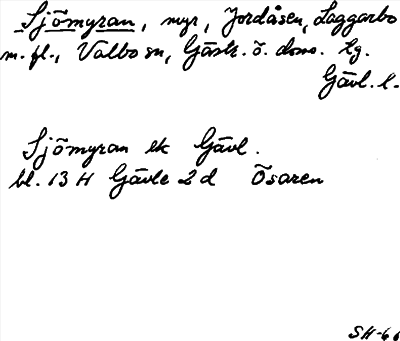 Sjömyran, myr, Jordåsen, Laggarbo
m.fl., Valbo sn, Gästr. ö. doms. tg.
Gävl. l.
Sjömyran ek Gävl.
bl. 13 H Gävle 2 d Ösaren
SH-66